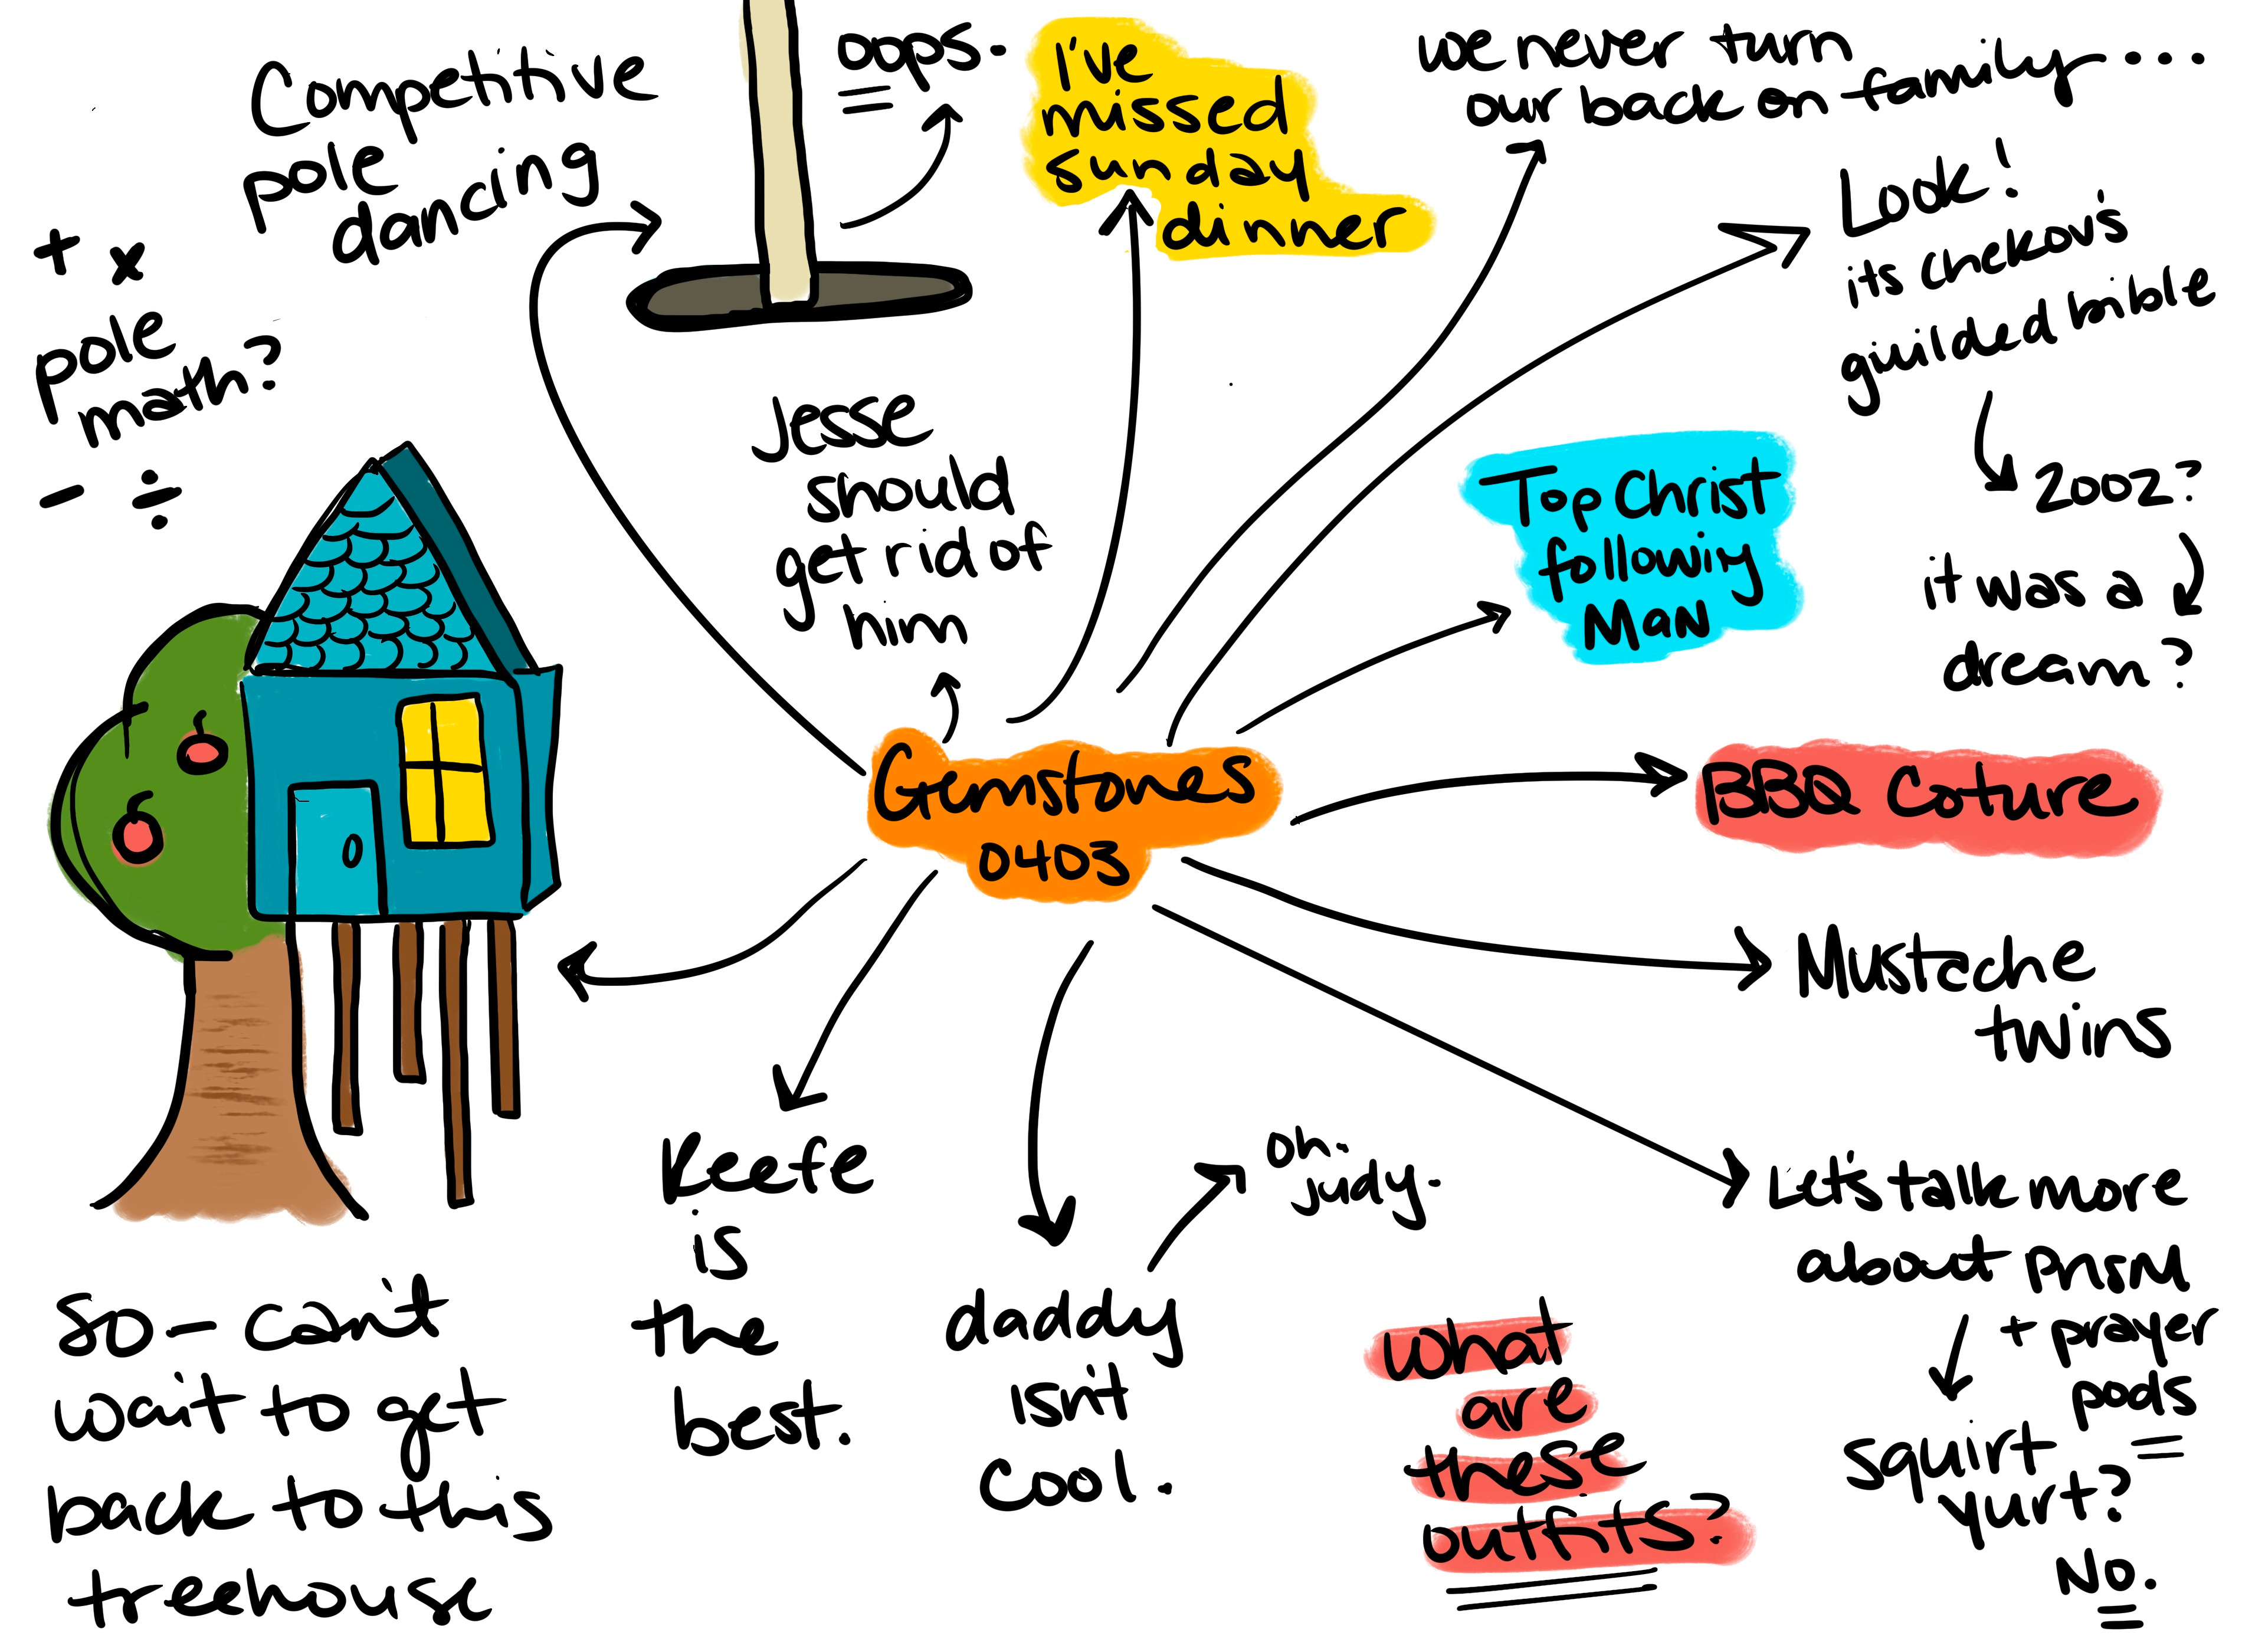 Competitive
pole
dancing
+ x
pole
math?
- ÷
oops.
I've
missed
sunday
dinner
we never turn
our back on family....
Look!
its chekov's
guilded bible
2002?
it was a
dream?
Jesse
should
get rid of
him
Top Christ
following
Man
Gemstones
0403
BBQ Coture
Mustache
twins
Let's talk more
about prism
+ prayer
pods
squirt
yurt?
No.
Keefe
is
the
best.
daddy
isn't
cool.
oh.
judy.
what
are
these
outfits?
so - can't
wait to get
back to this
treehouse